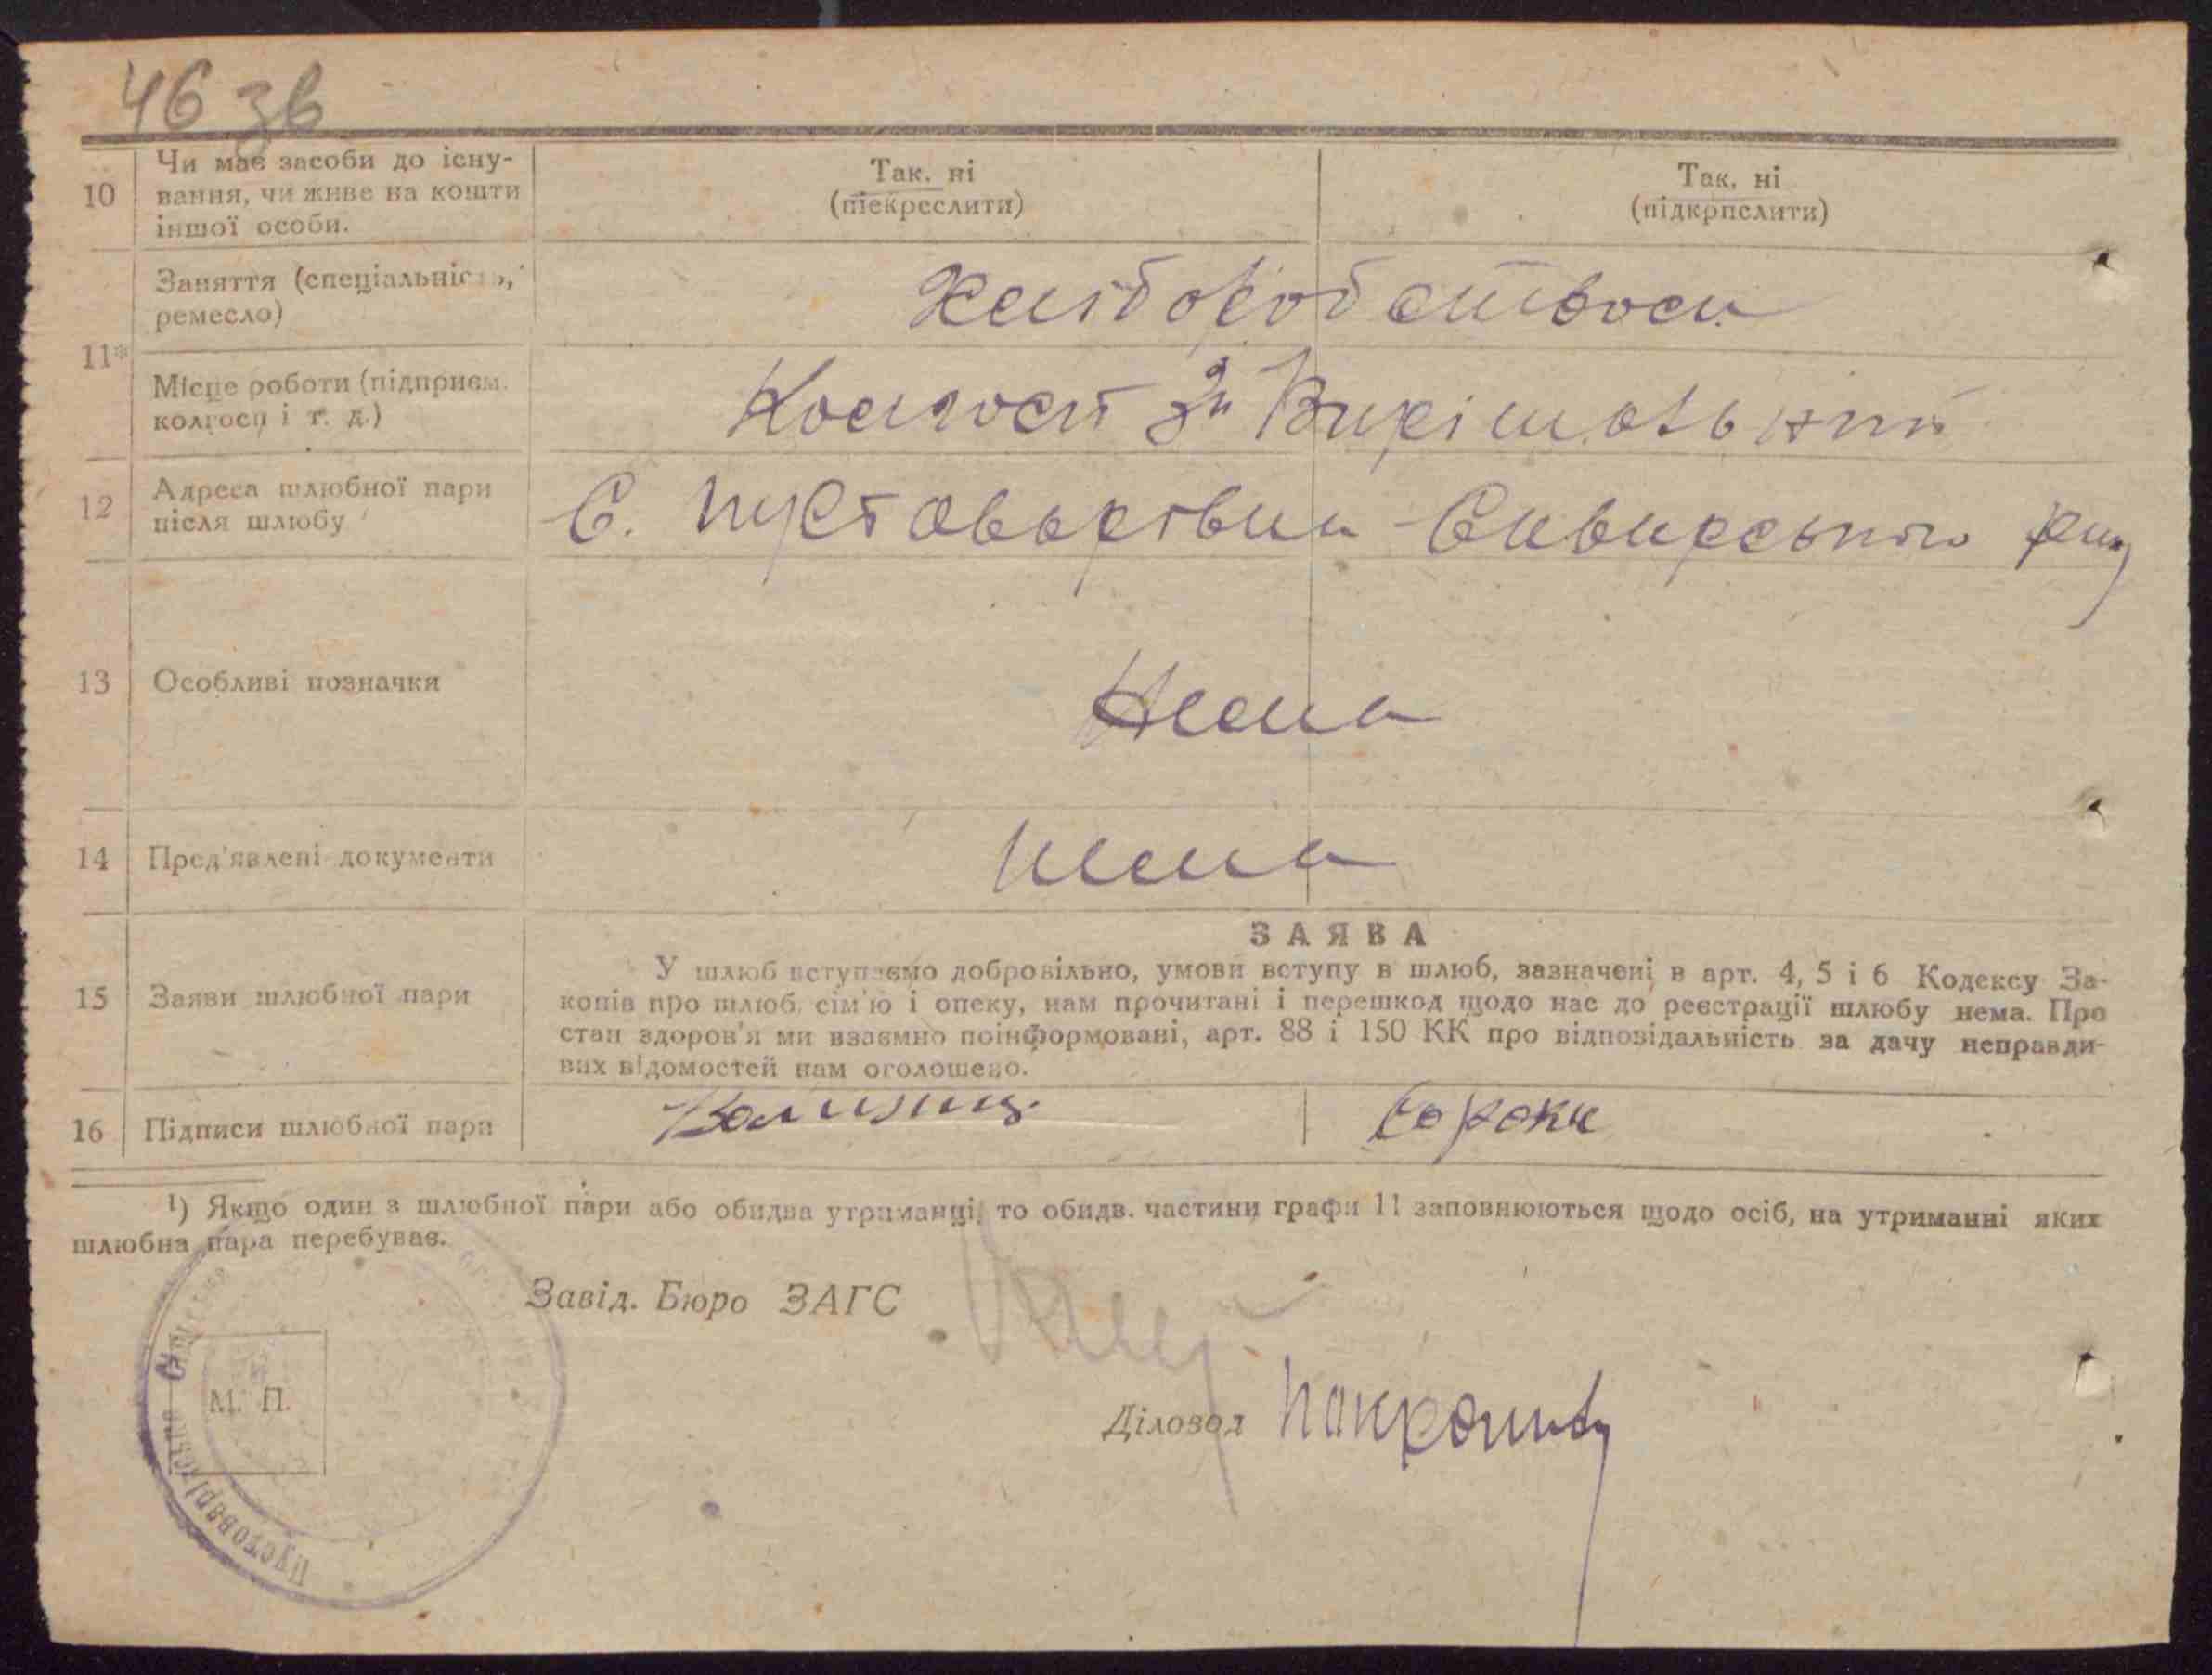 46 зв
10 Чи має засоби до існу-
вання, чи живе на кошти
іншої особи.
Так, ні
(піекреслити)
Так, ні
(підкрпслити)
11* Заняття (спеціальність,
ремесло)
Хліборобством
Місце роботи (підприєм.
колгосп і т. д.)
Колгосп 3й Вирішальний
12 Адреса шлюбної пари
після шлюбу
С. Пустоварівка Сквирського рну
13 Особливі позначки
Нема
14 Пред'явлені документи
Нема
15 Заяви шлюбної пари
ЗАЯВА
У шлюб вступаємо добровільно, умови вступу в шлюб, зазначені в арт. 4, 5 і 6 Кодексу За-
конів про шлюб, сім'ю і опеку, нам прочитані і перешкод щодо нас до реєстрації шлюбу нема. Про
стан здоров'я ми взаємно поінформовані, арт. 88 і 150 КК про відповідальність за дачу неправди-
вих відомостей нам оголошено.
16 Підписи шлюбної пари
Сороки
1) Якщо один з шлюбної пари або обидва утриманці, то обидв. частини графи 11 заповнюються щодо осіб, на утриманні яких
шлюбна пара перебуває.
Завід. Бюро ЗАГС
М. П.
Діловод
Пустоварівська